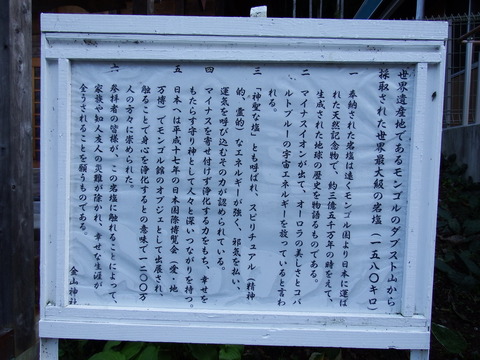 世界遺産地であるモンゴルのダブスト山から
採取された世界最大級の岩塩（一五八〇キロ）
一 奉納された岩塩は遠くモンゴル国より日本に運ば
れた天然記念物で、約三億五千万年の時をえて、
生成された地球の歴史を物語るものである。
二 マイナスイオンが出て、オーロラの美しさとコバ
ルトブルーの宇宙エネルギーを放っていると言わ
れる。
三 「神聖な塩」とも呼ばれ、スピリチュアル（精神
的、霊的）なエネルギーが強く、邪気を払い、
運気を呼び込むその力が認められている。
四 マイナスを寄せ付けず浄化する力をもち、幸せを
もたらす守り神として人々と深いつながりを持つ。
五 日本へは平成十七年の日本国際博覧会（愛・地
万博）でモンゴル館のオブジェとして出展され、
触ることで身心を浄化するとの意味で一二〇〇万
人の方々に崇められた。
六 参拝者の皆様が、この岩塩に触れることによって、
家族や知人友人の災難が除かれ、幸せな生涯が
全うされることを願うものである。
金山神社